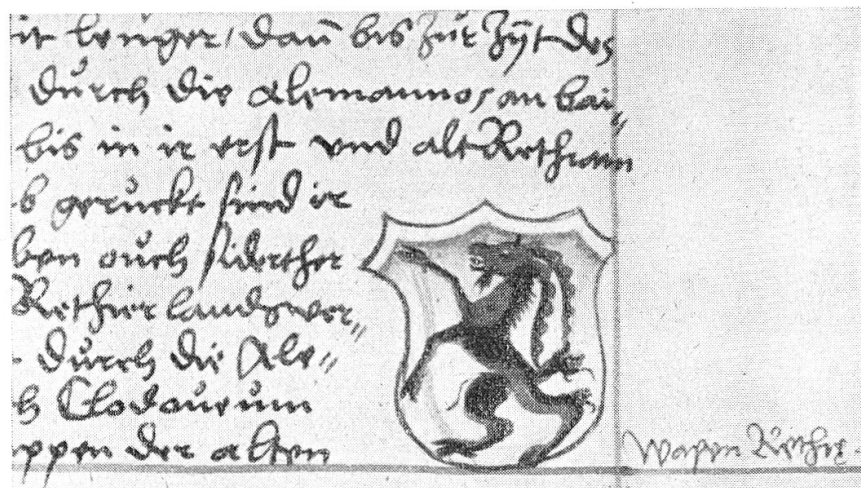 it lenger, dan̄ bis zůr Zÿt des
důrch die Alemannos, an bai„
bis in ir erst vnd alt Rethiam
b gerůckt sind ir
ben oůch siderther
Rethier landswer„
důrch die Ale„
ch Clodoueum
ppen der alten
Wapen Rethię.